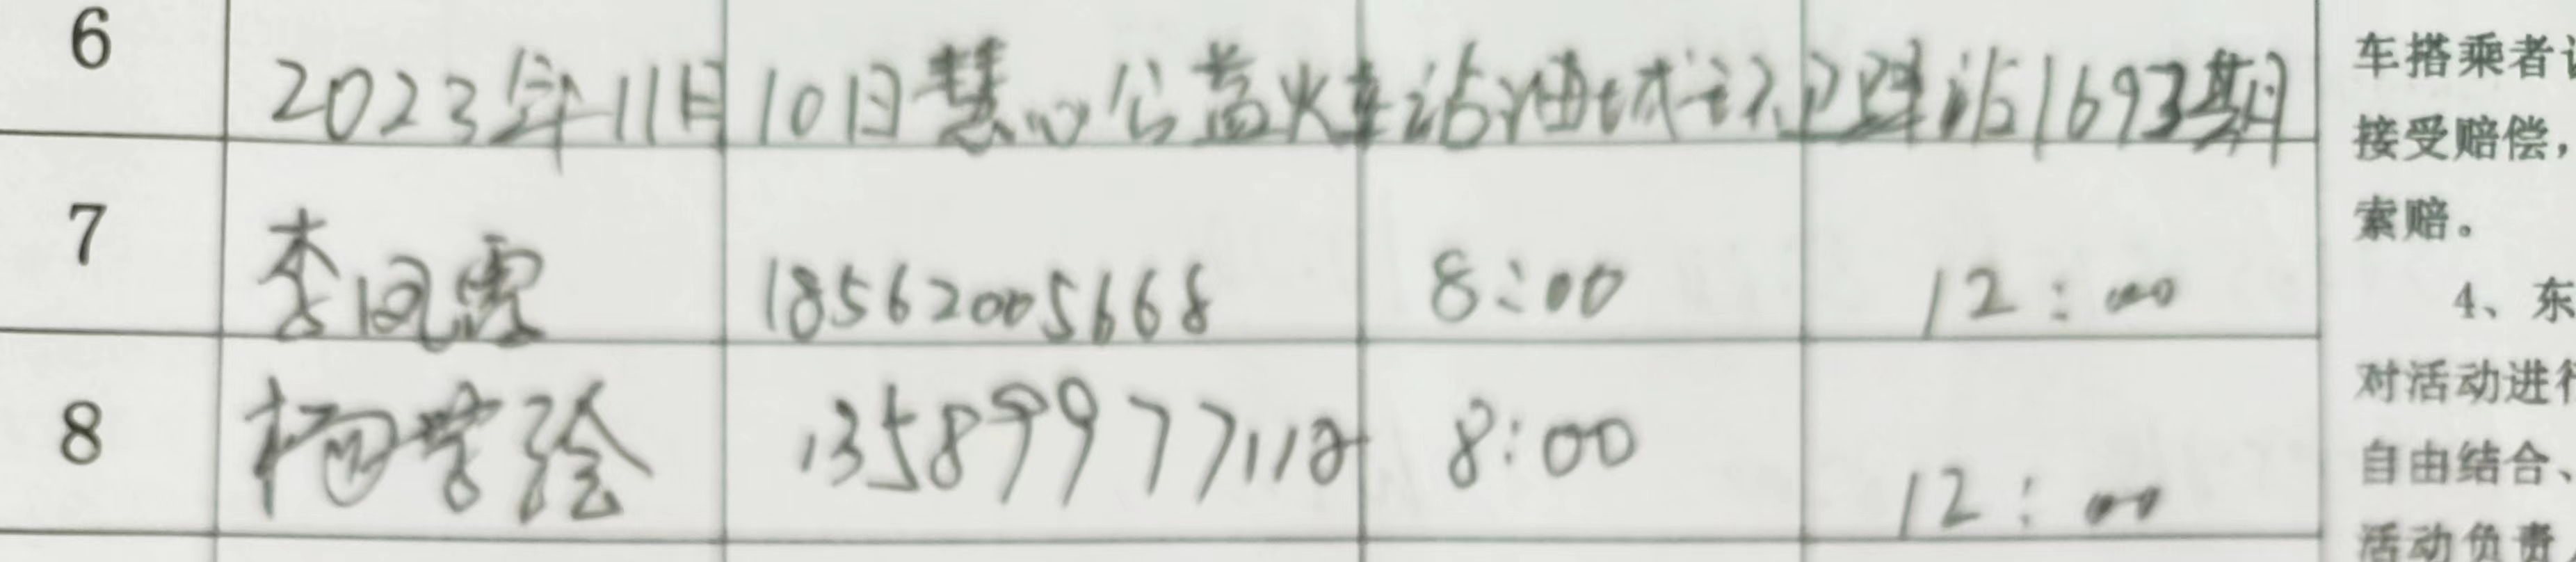 6 2023年11月10日慧心公益火车站油城诉卫驿站1693期
车搭乘者
接受赔偿，
7 李凤霞 18562005668 8:00 12:00
索赔。
4、东
对活动进行
8 杨学绘 13589977118 8:00 12:00
自由结合、
活动负责